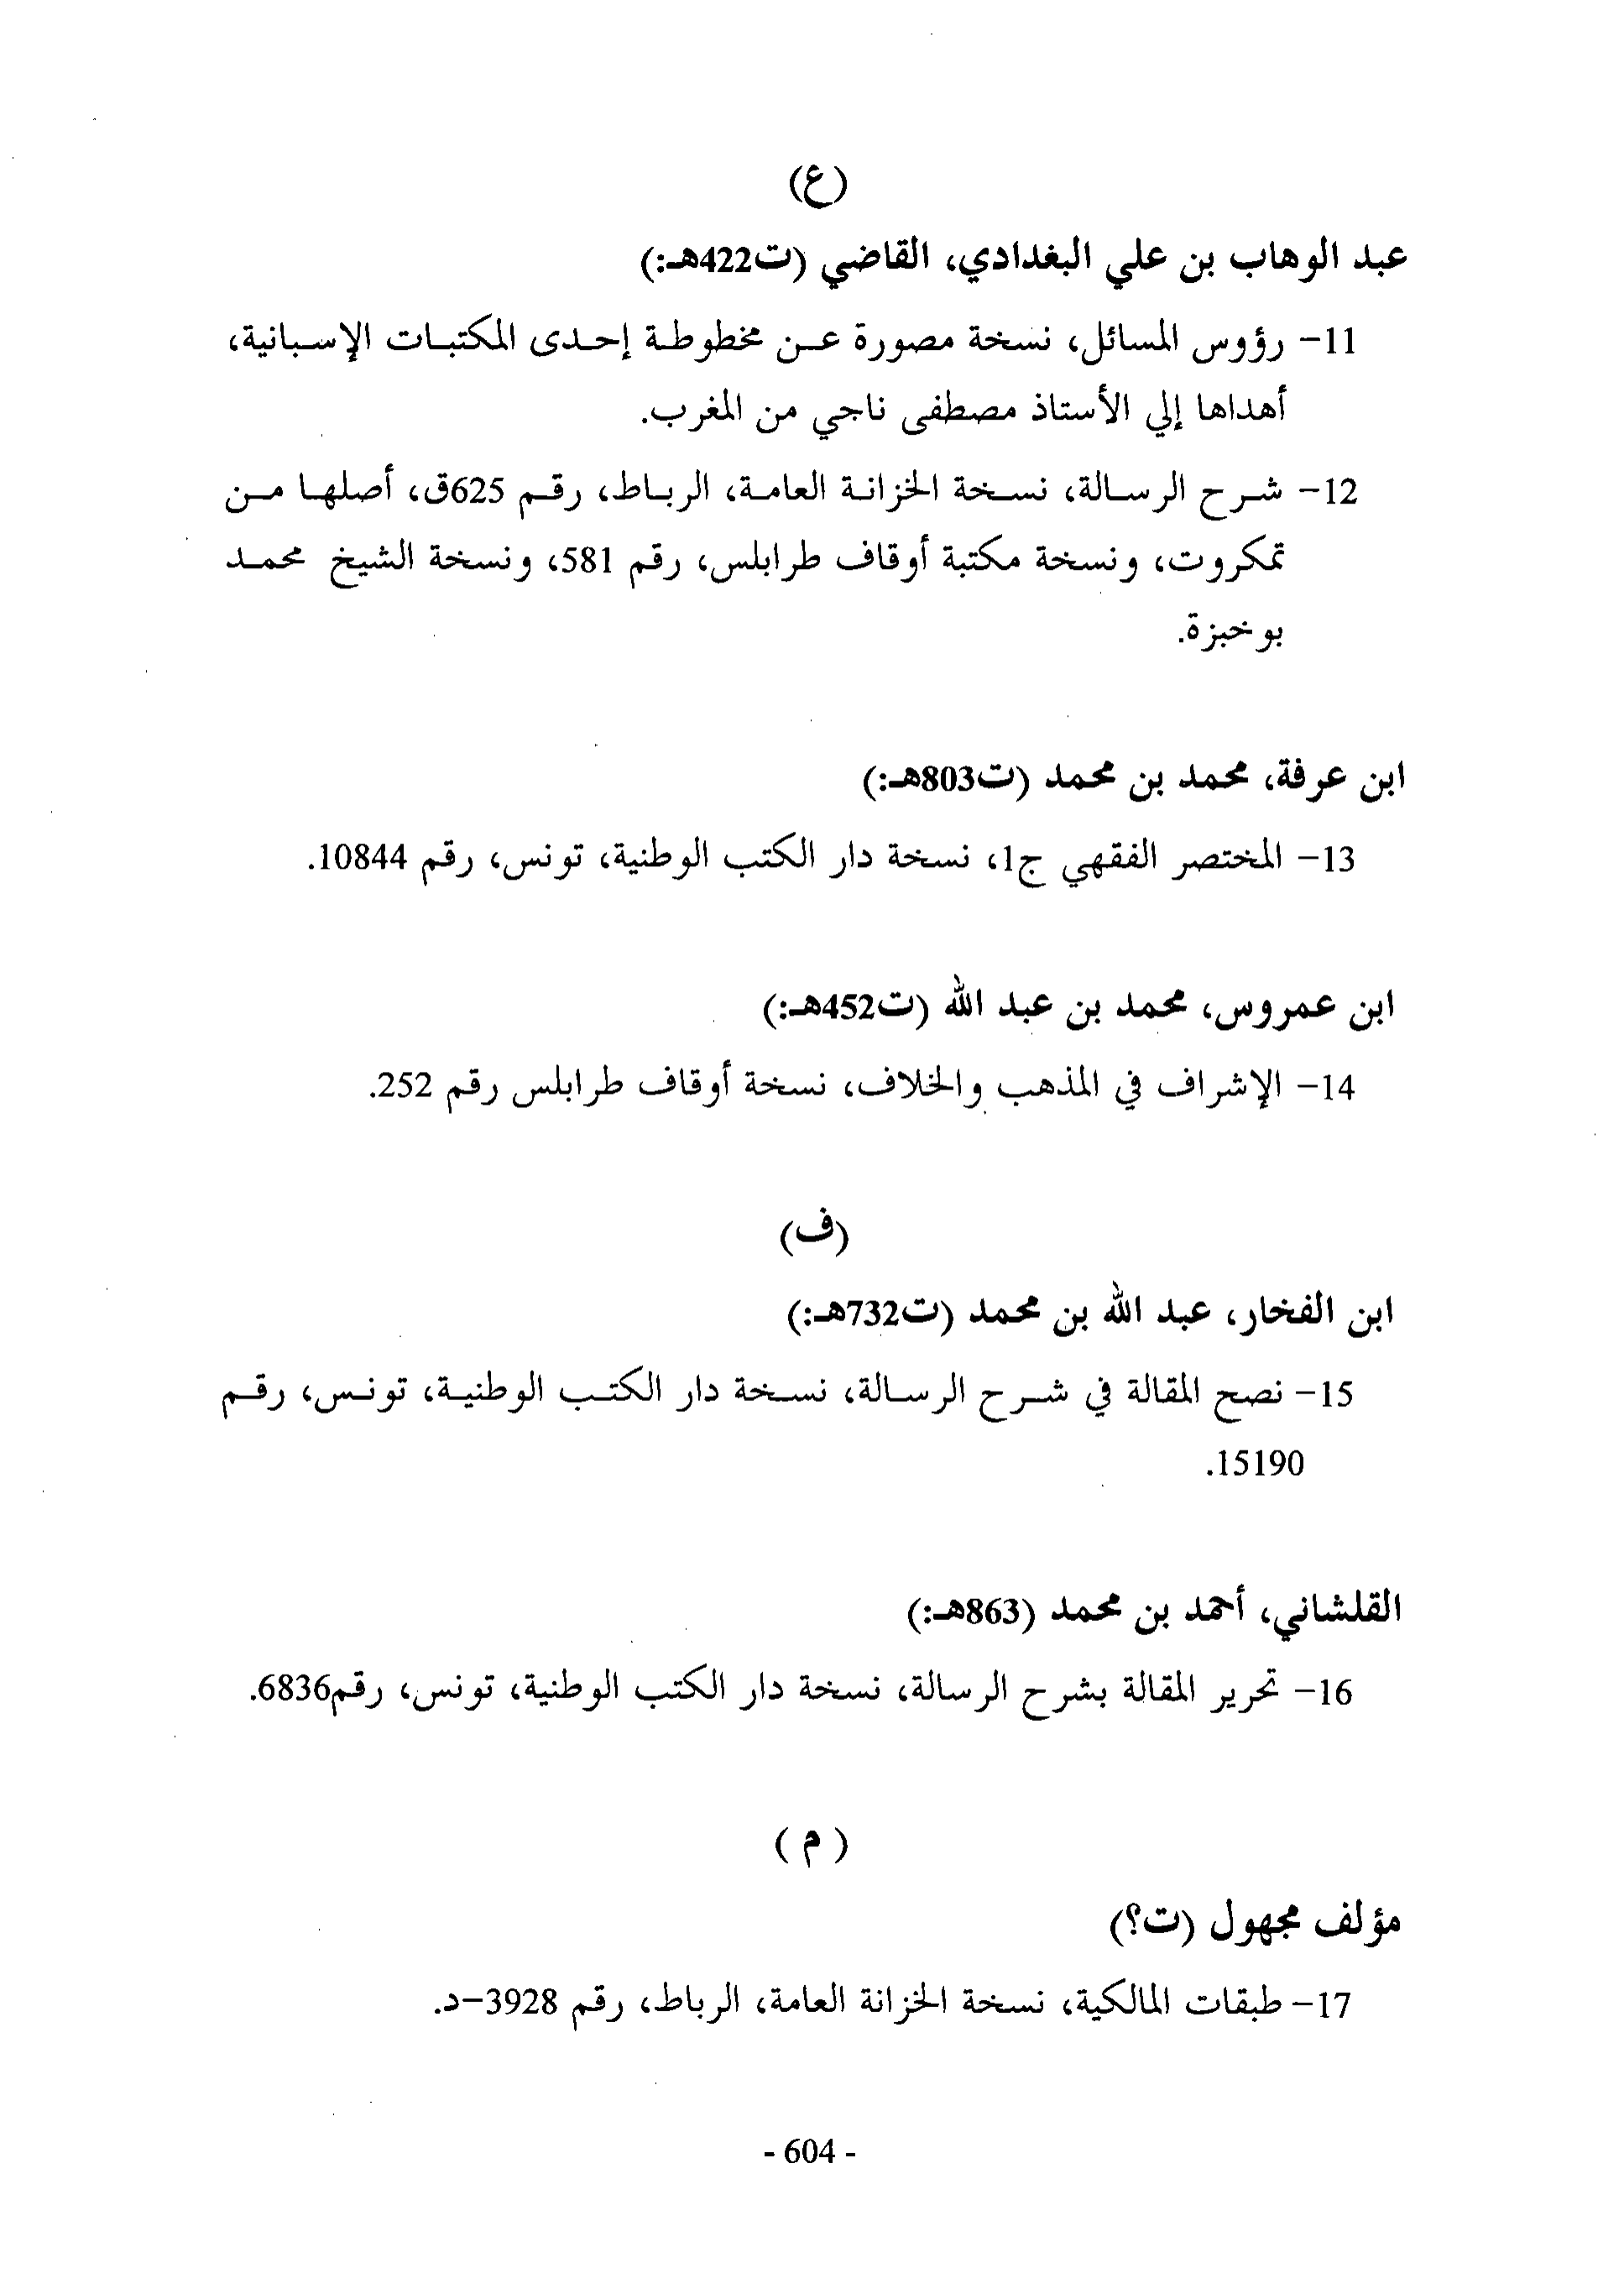 (ع)
عبد الوهاب بن علي البغدادي، القاضي (ت422هـ:)
11- رؤوس المسائل، نسخة مصورة عن مخطوطة إحدى المكتبات الإسبانية،
أهداها إلي الأستاذ مصطفى ناجي من المغرب.
12- شرح الرسالة، نسخة الخزانة العامة، الرباط، رقم 625ق، أصلها من
تمكروت، ونسخة مكتبة أوقاف طرابلس، رقم 581، ونسخة الشيخ محمد
بوخبزة.
ابن عرفة، محمد بن محمد (ت803هـ:)
13- المختصر الفقهي ج1، نسخة دار الكتب الوطنية، تونس، رقم 10844.
ابن عمروس، محمد بن عبد الله (ت452هـ:)
14- الإشراف في المذهب والخلاف، نسخة أوقاف طرابلس رقم 252.
(ف)
ابن الفخار، عبد الله بن محمد (ت732هـ:)
15- نصح المقالة في شرح الرسالة، نسخة دار الكتب الوطنية، تونس، رقم
15190.
القلشاني، أحمد بن محمد (863هـ:)
16- تحرير المقالة بشرح الرسالة، نسخة دار الكتب الوطنية، تونس، رقم6836.
( م )
مؤلف مجهول (ت؟)
17- طبقات المالكية، نسخة الخزانة العامة، الرباط، رقم 3928-د.
- 604 -